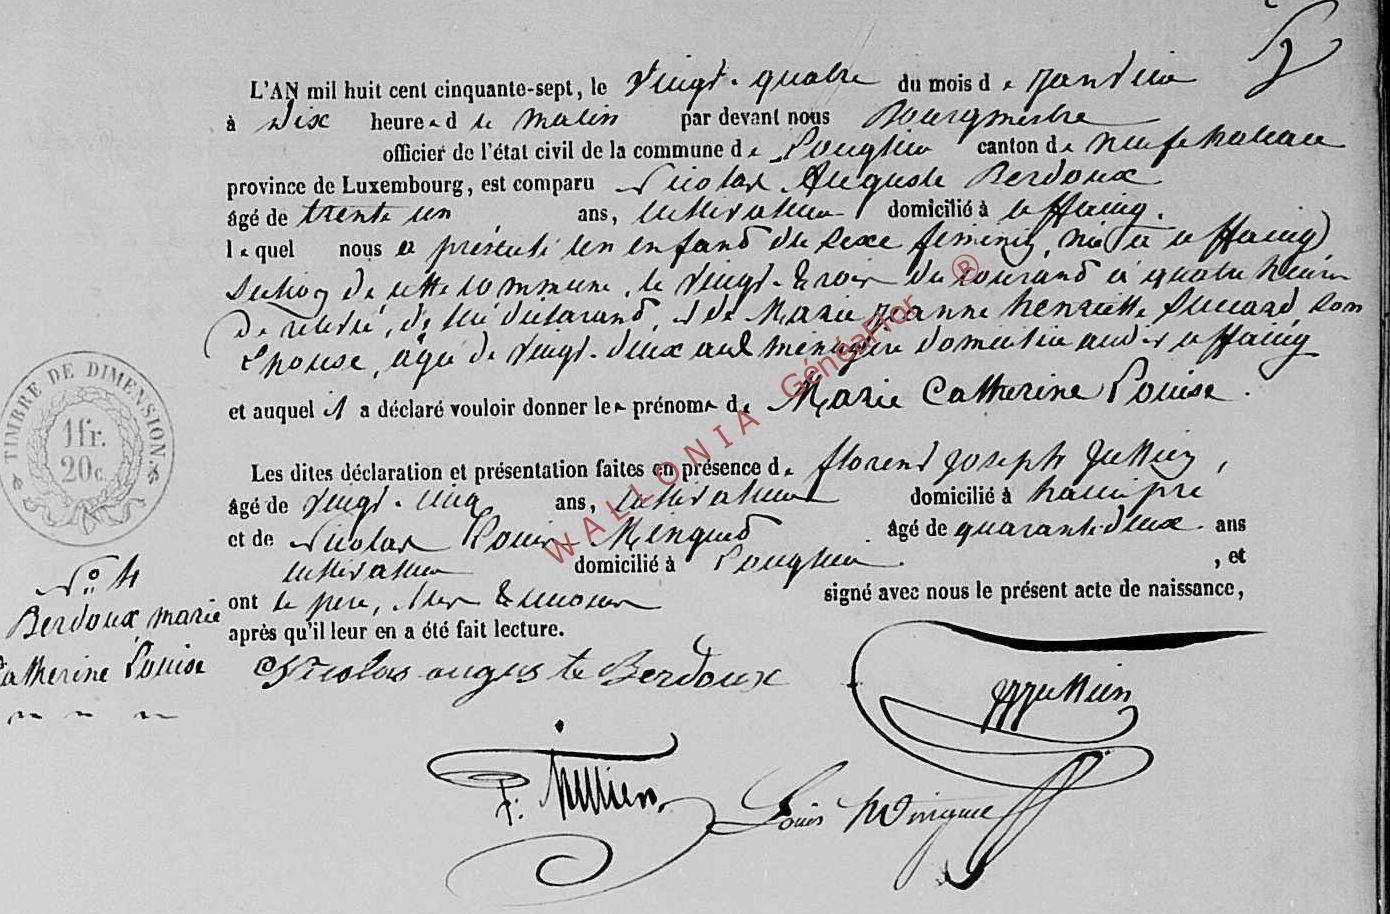 L'AN mil huit cent cinquante-sept, le vingt-quatre du mois de janvier
à dix heures du matin par devant nous Bourgmestre
officier de l'état civil de la commune de Longlier canton de neufchateau
province de Luxembourg, est comparu Nicolas Auguste Berdoux
âgé de trente un ans, cultivateur domicilié à uffaing.
lequel nous a présenté un enfant du sexe feminin, née à uffaing
section de cette commune, le vingt-trois du courant à quatre heures
de relevé, de lui déclarant, et de Marie jeanne henriette son
Epouse, âgée de vingt-deux ans ménagère domiciliée audit uffaing
et auquel il a déclaré vouloir donner les prénoms de Marie Catherine Louise.
Les dites déclaration et présentation faites en présence de florent joseph
âgé de vingt-cinq ans, cultivateur domicilié à hamipré
et de Nicolas Louis âgé de quarante-deux ans
cultivateur domicilié à Longlier. , et
ont le père, et les temoins signé avec nous le présent acte de naissance,
après qu'il leur en a été fait lecture.
TIMBRE DE DIMENSION.
1 fr.
20 c.
N° 4
Berdoux marie
Catherine Louise
Nicolas auguste Berdoux
Louis
WALLONIA GénéaFlor ®